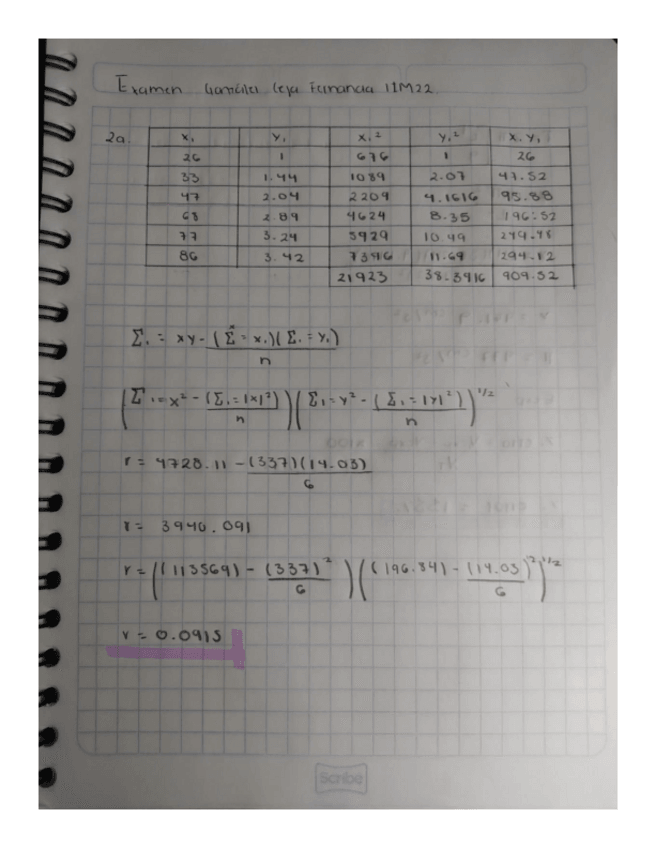 Examen González Ceja Fernanda 1IM22
2a. x₁ y₁ x₁² y₁² x₁ y₁
26 1 676 1 26
33 1.44 1089 2.07 47.52
47 2.04 2209 4.1616 95.88
68 2.89 4624 8.35 196.52
77 3.24 5929 10.49 249.48
86 3.42 7396 11.69 294.12
21923 38.3916 909.52
Σ₁ = xy - (Σ̂ = x₁)(Σ₁ = y₁)
n
(Σ 1=x² - (Σ₁=|x|²)) (Σ₁=y² - (Σ₁=|y|²))^1/2
n n
r = 4728.11 - (337)(14.03)
6
r = 3940.091
r = ((113569) - (337)²) ((196.84) - (14.03)²)^1/2
6 6
r = 0.0915
Scribe